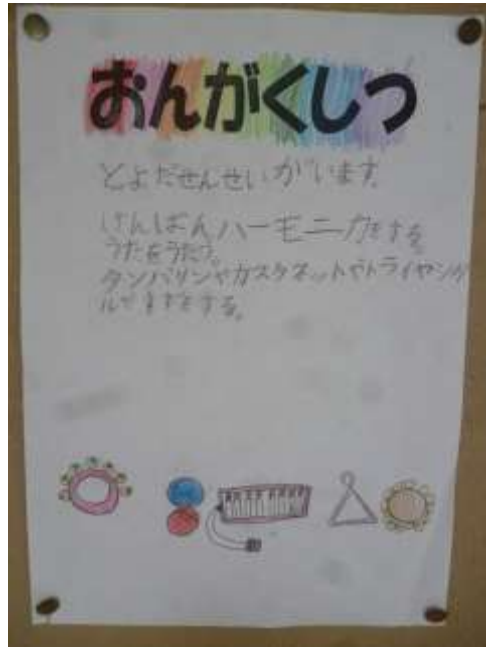 おんがくしつ
とよだせんせいがいます。
けんばんハーモニカをする。
うたをうたう。
タンバリンやカスタネットやトライヤング
ルで をする。